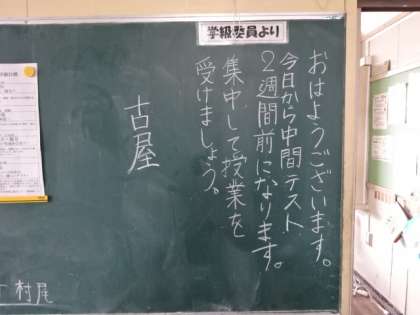 学級委員より
おはようございます。
今日から中間テスト
2週間前になります。
集中して授業を
受けましょう。
古屋
村尾